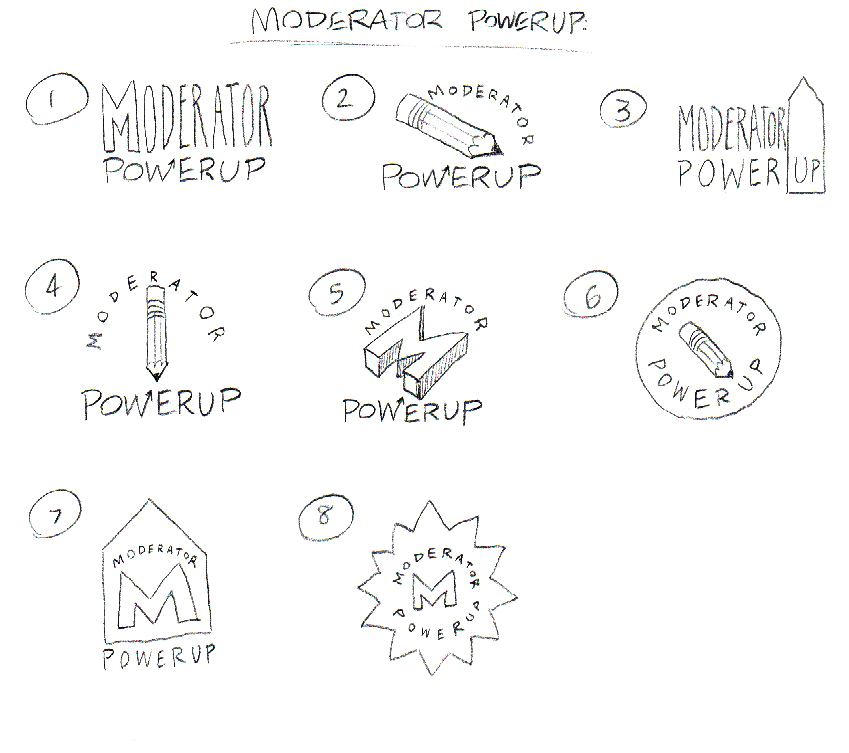 MODERATOR POWERUP:
1
MODERATOR
POWERUP
2
MODERATOR
POWERUP
3
MODERATOR
POWER UP
4
MODERATOR
POWERUP
5
MODERATOR
M
POWERUP
6
MODERATOR
POWER UP
7
MODERATOR
M
POWERUP
8
MODERATOR
M
POWERUP